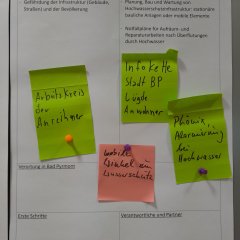 Gefährdung der Infrastruktur (Gebäude,
Straßen) und der Bevölkerung
Planung, Bau und Wartung von
Hochwasserschutzinfrastruktur: stationäre
bauliche Anlagen oder mobile Elemente
Notfallpläne für Aufräum- und
Reparaturarbeiten nach Überflutungen
durch Hochwasser
Arbeitskreis
der
Anrainer
Infokette
Stadt BP
Lügde
Anwohner
Phönix,
Alarmierung
bei
Hochwasser
zum
Verortung in Bad Pyrmont
Erste Schritte
Verantwortliche und Partner